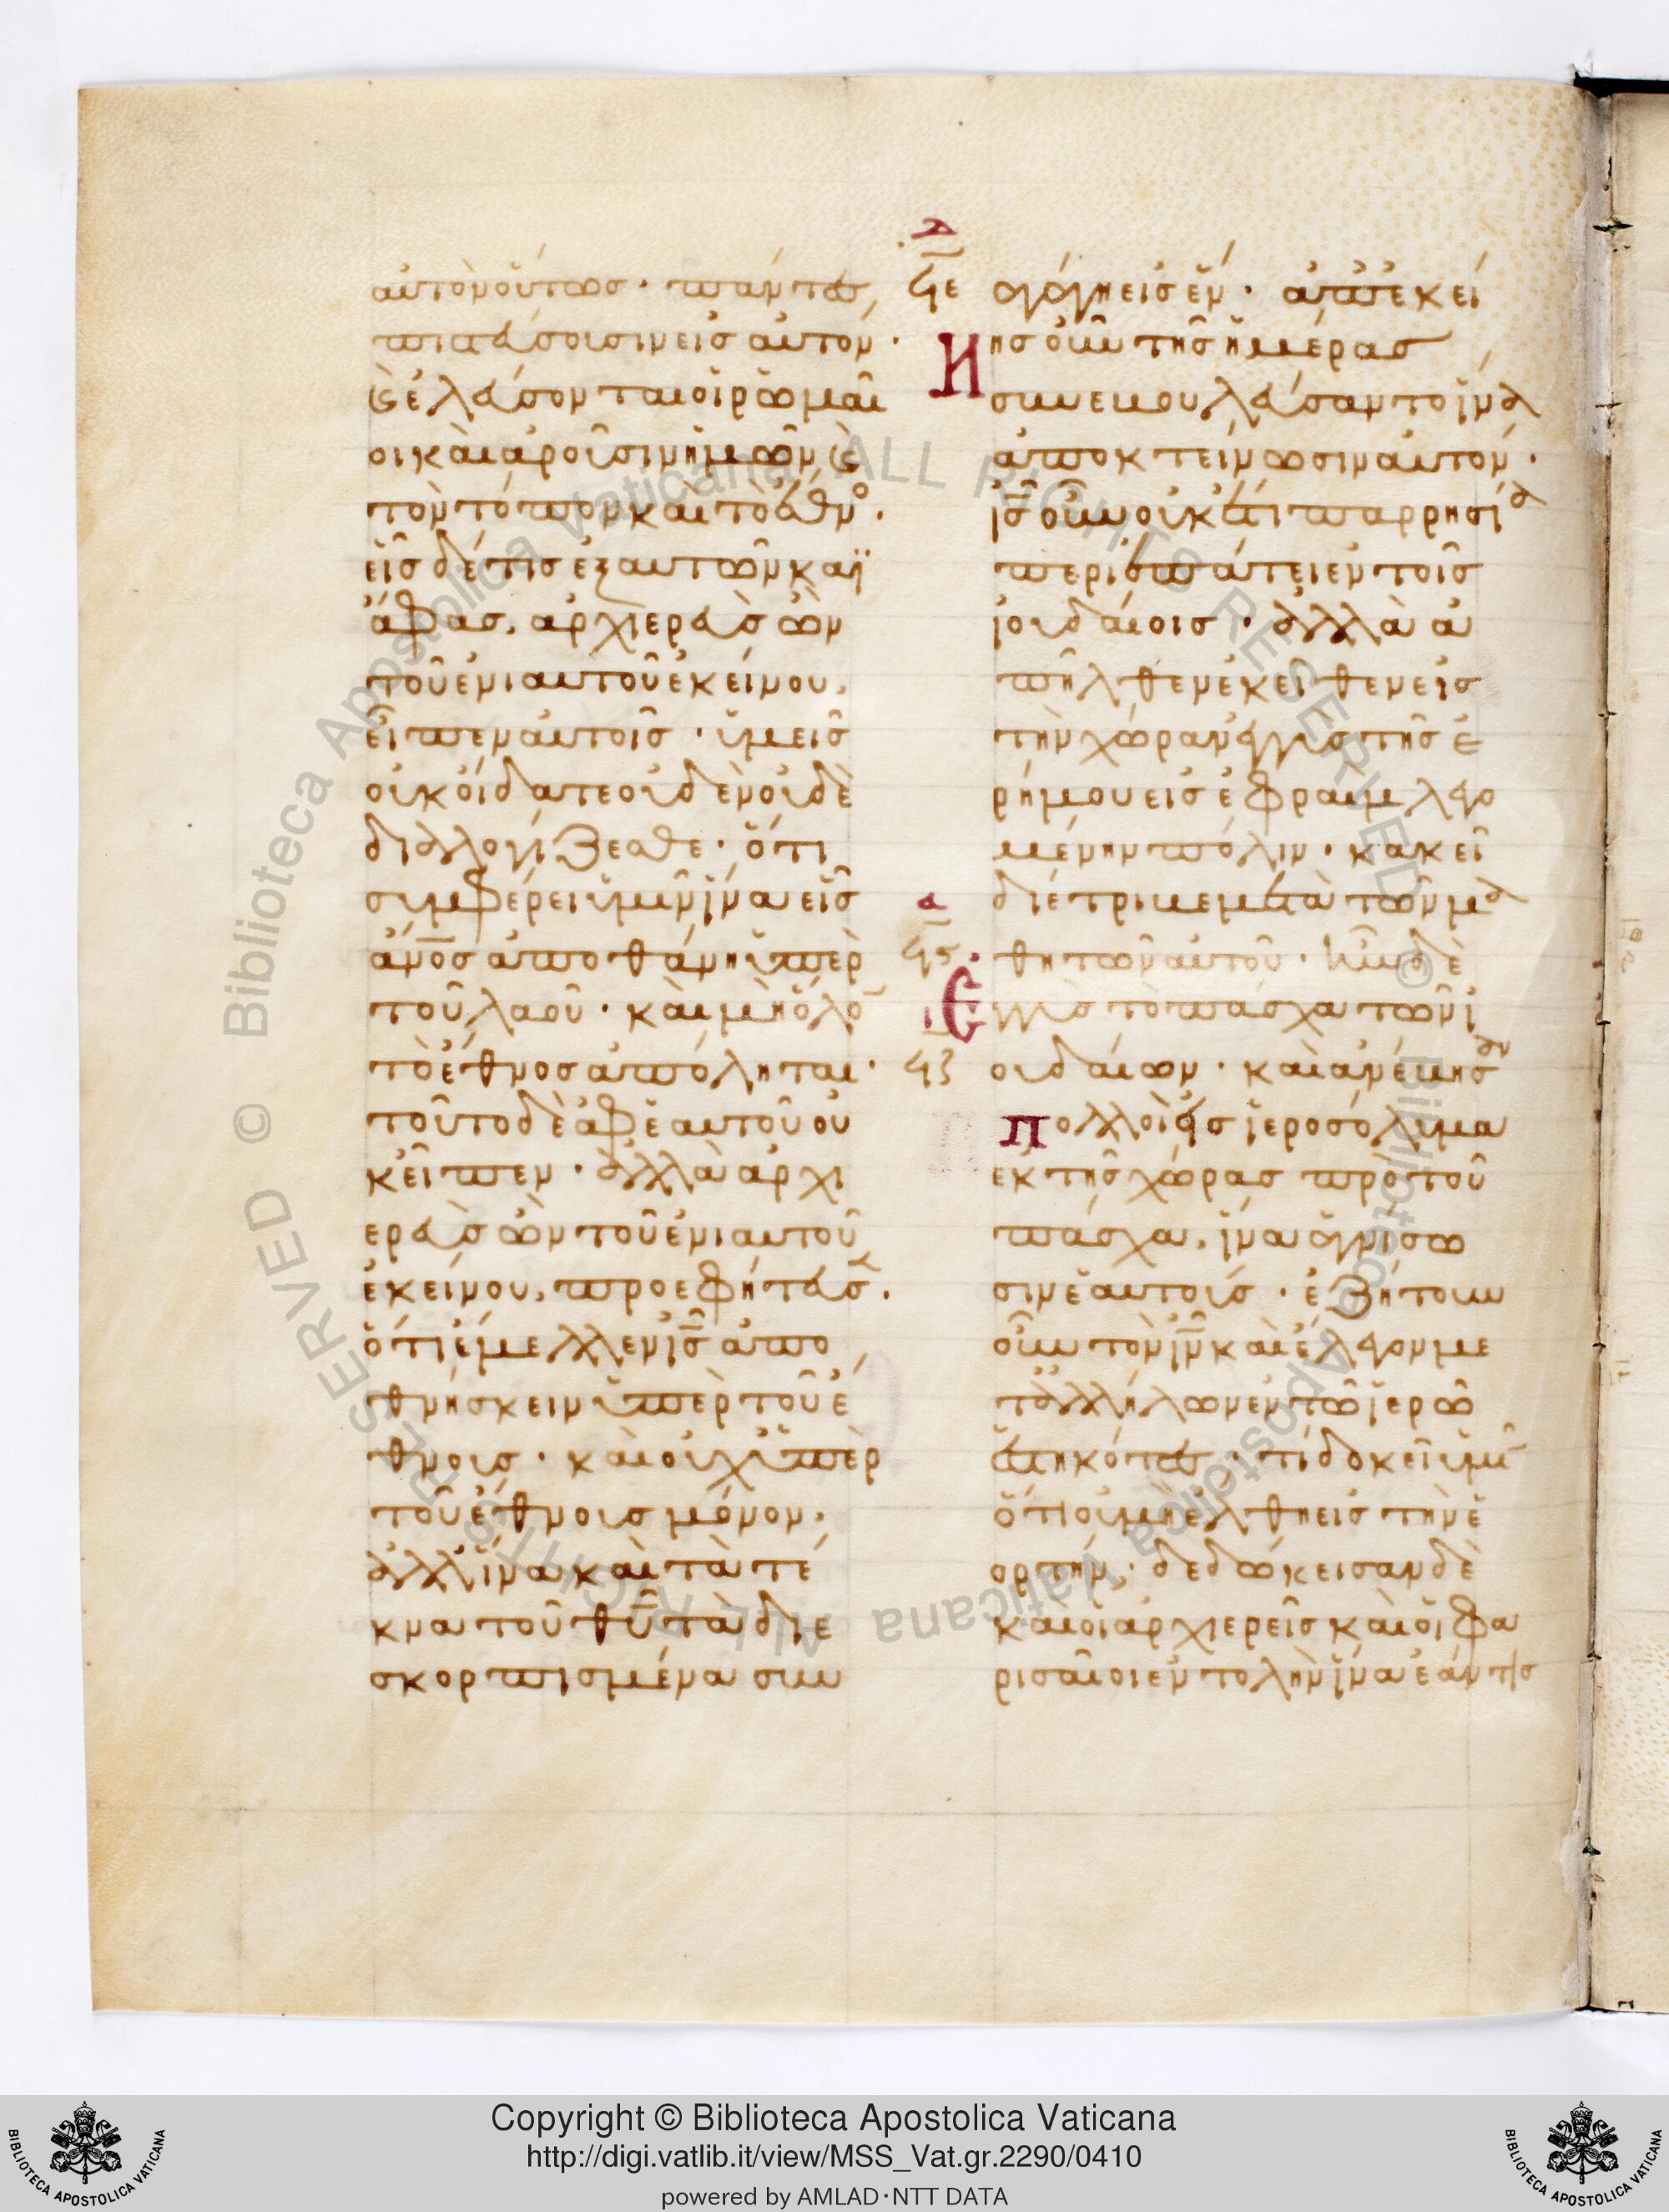 αὐτὸν οὕτως · πάντες
πιστεύσουσιν εἰς αὐτὸν ·
καὶ ἐλεύσονται οἱ ῥωμαῖ
οι καὶ ἀροῦσιν ἡμῶν καὶ
τὸν τόπον καὶ τὸ ἔθνο ·
εἷς δέ τις ἐξ αὐτῶν καϊ
άφας, ἀρχιερεὺς ὢν
τοῦ ἐνιαυτοῦ ἐκείνου,
εἶπεν αὐτοῖς · ὑμεῖς
οὐκ οἴδατε οὐδὲν οὐδὲ
διαλογίζεσθε · ὅτι
συμφέρει ὑμῖν ἵνα εἷς
ἄνος ἀποθάνη ὑπὲρ
τοῦ λαοῦ · καὶ μὴ ὅλο
τὸ ἔθνος ἀπόληται ·
τοῦτο δὲ ἀφ' ἑαυτοῦ οὐ
κ εἶπεν · ἀλλὰ ἀρχι
ερεὺς ὢν τοῦ ἐνιαυτοῦ
ἐκείνου, προεφήτευσ ·
ὅτι ἔμελλεν ις ἀπο
θνήσκειν ὑπὲρ τοῦ ἔ
θνους · καὶ οὐχ ὑπὲρ
τοῦ ἔθνους μόνον,
ἀλλ' ἵνα καὶ τὰ τέ
κνα τοῦ θυ τὰ διε
σκορπισμένα συν
δ
ϟε
αγάγη εἰς ἕν · ἀπ' ἐκεί
νης οὖν τῆς ἡμέρας
συνεβουλεύσαντο ἵνα
ἀποκτείνωσιν αὐτόν ·
ις οὖν οὐκέτι παρρησία
περιεπάτει ἐν τοῖς
ἰουδαίοις · ἀλλὰ ἀ
πῆλθεν ἐκεῖθεν εἰς
τὴν χώραν ἐγγὺς τῆς ἐ
ρήμου εἰς ἐφραῒμ λεγο
μένην πόλιν · κἀκεῖ
διέτριβεν μετὰ τῶν μα
α
ϟϛ
θητῶν αὐτοῦ · ἦν δὲ
Εγγὺς τὸ πάσχα τῶν ἰ
ϟζ
ουδαίων · καὶ ἀνέβησαν
πολλοὶ εἰς ἱεροσόλυμα
ἐκ τῆς χώρας πρὸ τοῦ
πάσχα, ἵνα ἁγνίσω
σιν ἑαυτούς · ἐζήτουν
οὖν τὸν ιν καὶ ἔλεγον με
τ' ἀλλήλων ἐν τῶ ἱερῶ
ἑστηκότες · τί δοκεῖ ὑμῖ
ὅτι οὐ μὴ ἔλθη εἰς τὴν ἑ
ορτήν · δεδώκεισαν δὲ
καὶ οἱ ἀρχιερεῖς καὶ οἱ φα
ρισαῖοι ἐντολὴν ἵνα ἐάν τις
Copyright © Biblioteca Apostolica Vaticana
http://digi.vatlib.it/view/MSS_Vat.gr.2290/0410
powered by AMLAD·NTT DATA
Biblioteca Apostolica Vaticana ALL RIGHTS RESERVED ©
Biblioteca Apostolica Vaticana ALL RIGHTS RESERVED ©
BIBLIOTECA APOSTOLICA VATICANA
BIBLIOTECA APOSTOLICA VATICANA